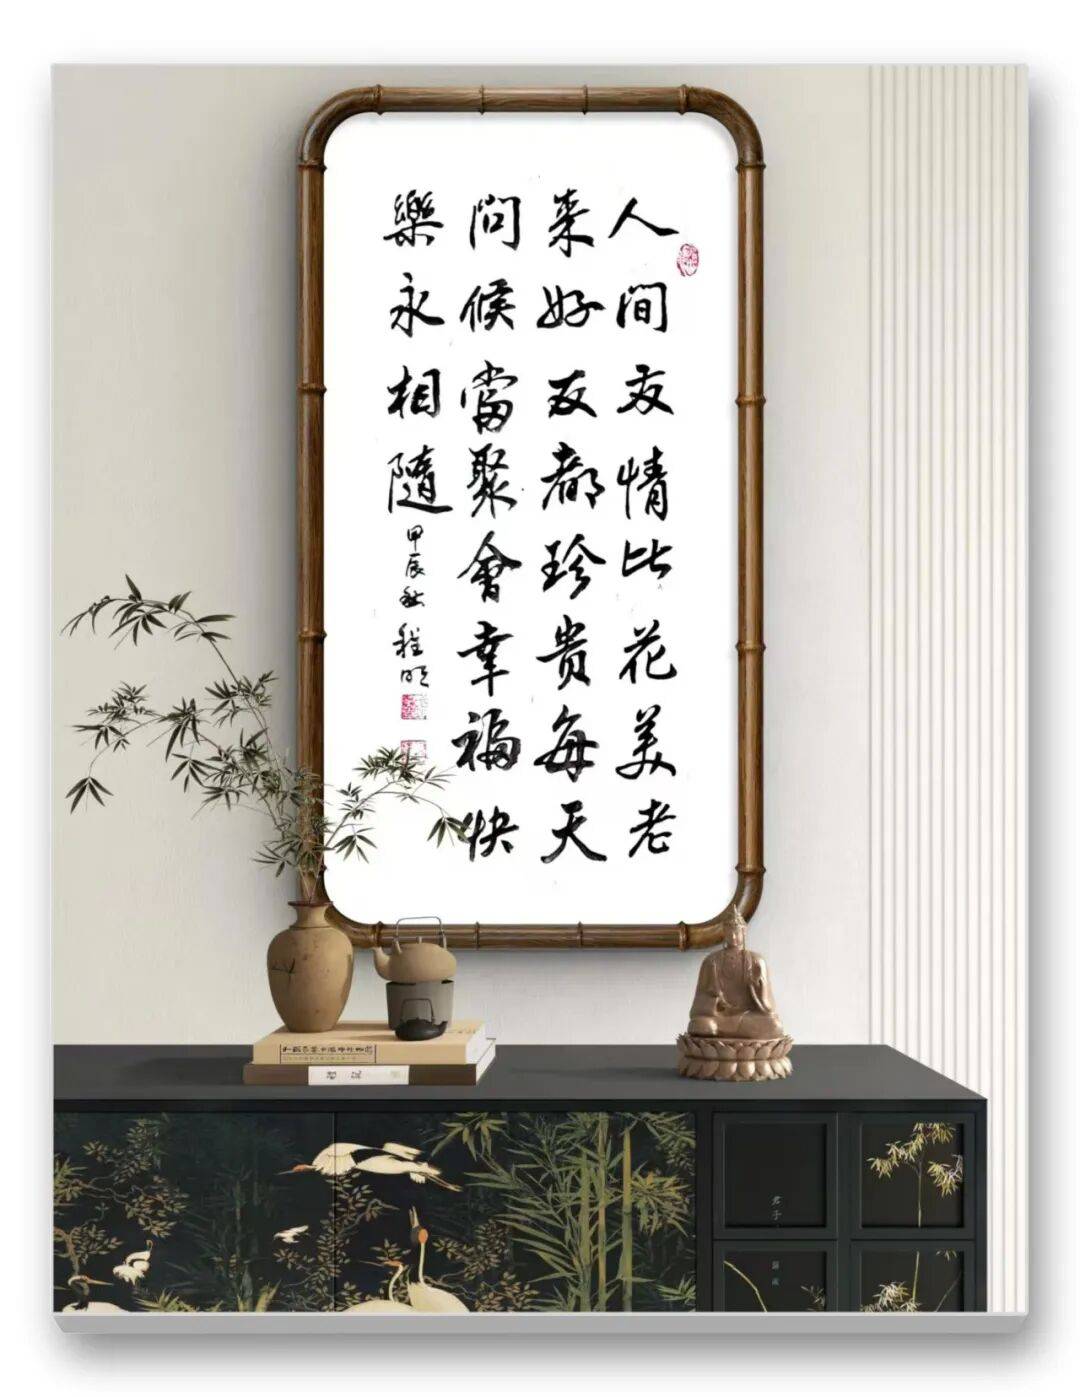 人間友情比花美老
来好友都珍贵每天
問候當聚會幸福快
樂永相隨
甲辰秋 程明
君子